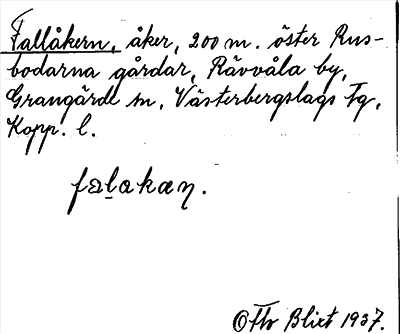 Fallåkern, åker, 200 m. öster Rus-
bodarna gårdar, Rävvåla by,
Grangärde sn, Västerbergslags Fg,
Kopp. l.
falakaɳ.
Otto Blixt 1937.